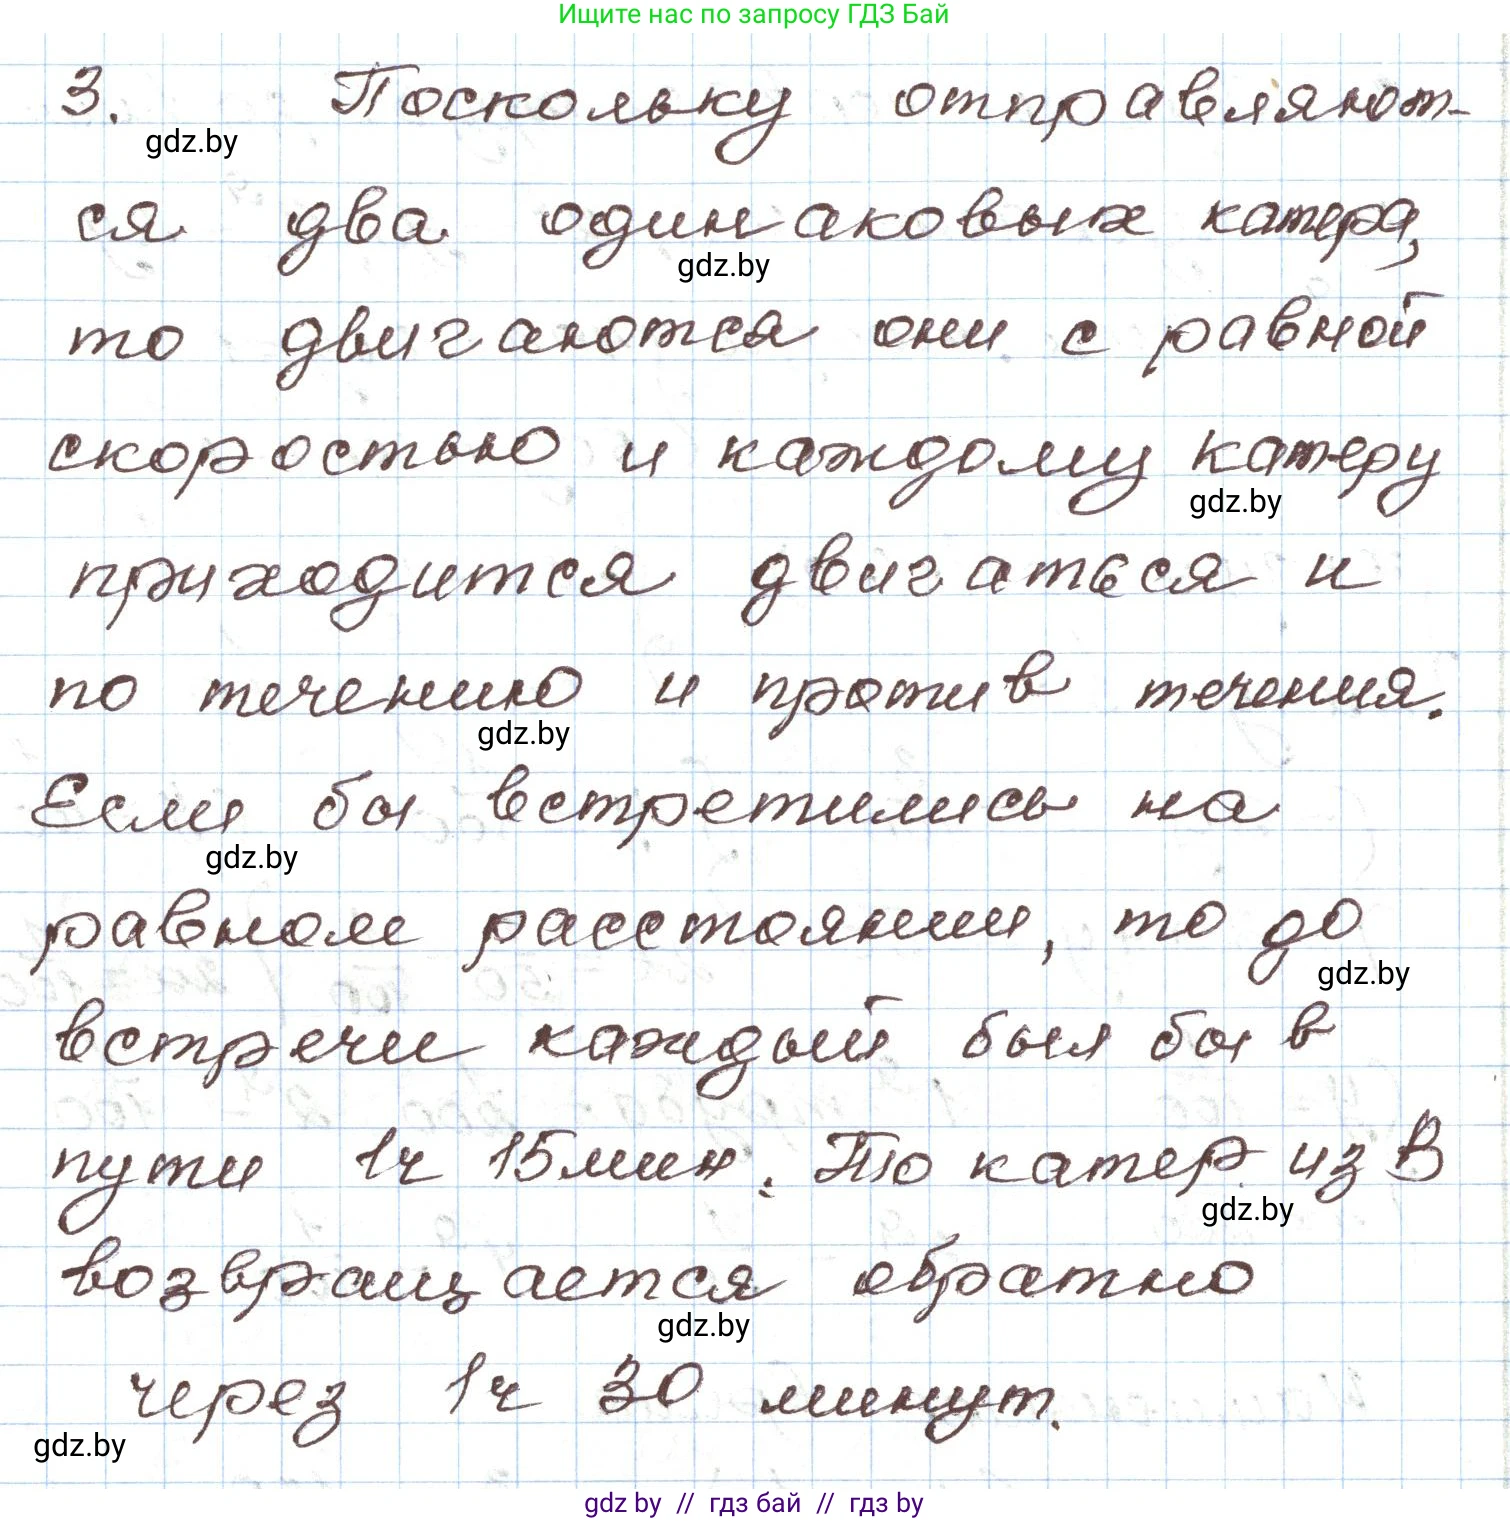 Ищите нас по запросу ГДЗ Бай
3. Поскольку отправляют-
gdz.by
ся два одинаковых катера,
gdz.by
то двигаются они с равной
скоростью и каждому катеру
gdz.by
приходится двигаться и
по течению и против течения.
gdz.by
Если бы встретились на
gdz.by
равном расстоянии, то до
gdz.by
встречи каждый был бы в
пути 1ч 15мин. То катер из В
gdz.by
возвращается обратно
gdz.by
через 1ч 30 минут.
gdz.by
gdz by // гдз бай // гдз by